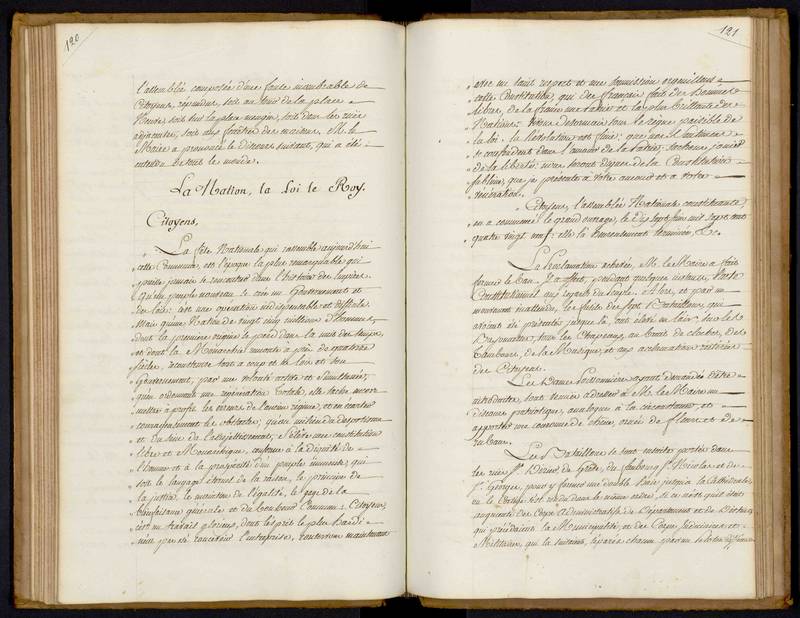 120
l'assemblée composée d'une foule innombrable de
Citoyens, répandue, soit au tour de la place
Neuve, soit sur la place, soit dans les rues
adjacentes, soit aux fenêtres des maisons. M. le
Maire a prononcé le Discours suivant, qui a été
entendu de tout le monde.
La Nation, la Loi le Roy.
Citoyens,
La fête Nationale qui rassemble aujourd'hui
cette Commune, est l'époque la plus remarquable qui
puisse jamais se rencontrer dans l'histoire des Empires.
Qu'un peuple nouveau se crée un Gouvernement et
des loix: c'est une opération indispensable et difficile.
Mais qu'une Nation de vingt cinq millions d'hommes,
dont la première origine se perd dans la nuit des temps,
et dont la Monarchie remonte à près de quatorze
siècles, reconstruise tout à coup et ses loix et son
Gouvernement, par une volonté active et simultanée,
qu'en ordonnant une régénération totale, elle sache encore
mettre à profit les erreurs de l'ancien régime, et en écarter
courageusement les obstacles; qu'au milieu du despotisme
et du sein de l'assujettissement, s'élève une constitution
libre et Monarchique, conforme à la dignité de
l'homme et à la prospérité d'un peuple immense, qui
soit le langage éternel de la raison, le principe de
la justice, le maintien de l'égalité, le gage de la
bienfaisance générale et du bonheur Commun: Citoyens,
c'est un travail glorieux, dont l'esprit le plus hardi
l'entreprise, maintenant
121
avec un saint respect et une soumission
cette Constitution, qui des français fait des hommes
libres, de la france une Nation et la plus brillante des
Nations. Vivons désormais sous le règne paisible de
la loi. la Révolution est finie: que nos
se confondent dans l'amour de la Patrie;
de la liberté: nous serons dignes de la Constitution
sublime, que je présente à votre amour et à votre
vénération.
Citoyens, l'assemblée Nationale constituante,
en a commencé le grand ouvrage, le Dix sept juin mil sept cent
quatre vingt neuf: elle l'a heureusement terminé, &c.
La Proclamation achevée, M. le Maire a fait
fermer le Ban. Il a offert, pendant quelques instans, l'acte
Constitutionnel aux regards du peuple. Alors, et par un
mouvement inattendu, les fusils des sept Bataillons, qui
avoient été présentés jusques là, ont été élevés en l'air,
tous les Chapeaux, au bruit des cloches, des
tambours, de la Musique, et aux acclamations réitérées
des Citoyens.
Les Dames Poissonnières ayant demandé d'être
introduites, sont venues adresser à M. le Maire un
discours patriotique, analogue à la circonstance, et
apporter une couronne de chêne, ornée de fleurs et de
rubans.
Les Bataillons se sont ensuite portés dans
les rues St. Dizier, de Grève, du faubourg St. Nicolas et de
St. Georges, pour y former une double haie jusqu'à la Cathédrale,
où le Cortège s'est rendu dans le même ordre, si ce n'est qu'il étoit
augmenté des Corps administratifs du Département et du District,
qui précédoient la Municipalité, et des Corps Judiciaires et
Militaires, qui la suivoient, séparés chacun par un